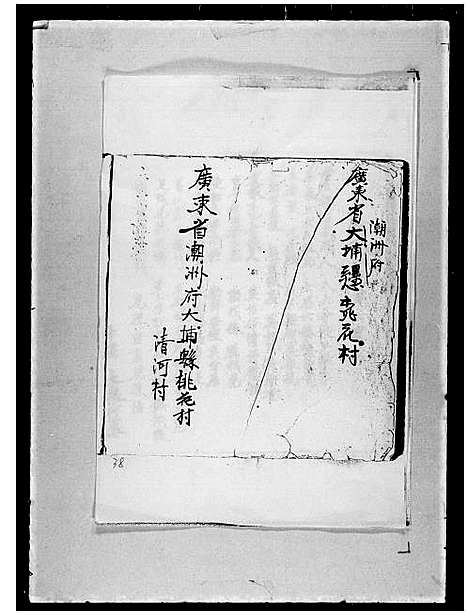 廣東省大埔縣桃花村
潮洲府
廣東省潮州府大埔縣桃花村
清河村
38